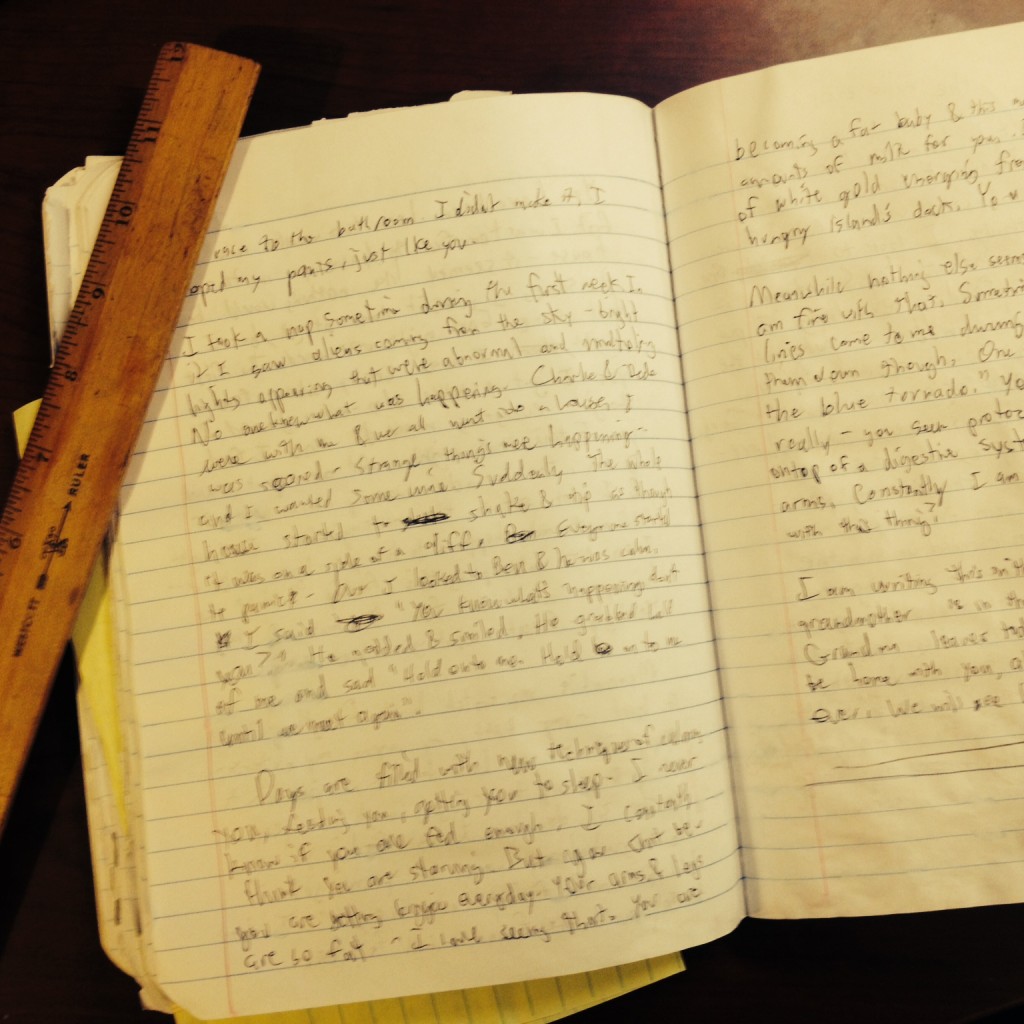 12
11
10
9
8
7
6
WESTCOTT
RULER
to the bathroom I didn't make it, I
my pants, just like you.
I took a nap sometime during the first week. In
it I saw aliens coming from the sky - bright
lights appearing that were abnormal and
No one knew what was happening. Charlie &
were with me & we all went into a house, I
was scared - strange things were happening -
and I wanted some wine. Suddenly the whole
house started to shake & tip as though
it was on a side of a cliff. Everyone started
to panic - I looked to Ben & he was calm.
I said "You know what's happening don't
you?" He nodded & smiled. He grabbed hold
of me and said "Hold onto me. Hold on to me
until we meet again".
Days are filled with new techniques of
you, feeding you, getting you to sleep. I never
know if you are fed enough. I constantly
think you are starving. But
you are bigger everyday. Your arms & legs
are so fat - I love seeing that. You are
becoming a fat baby & this
amounts of milk for you.
of white gold emerging
hungry Island's dock. You
Meanwhile nothing else seems
am fine with that. Sometimes
lines come to me during
them down though. One
the blue tornado." You
really - you seem
ontop of a digestive
arms. Constantly I am
with this thing?
I am writing this on
grandmother is in the
Grandma leaves
be home with you,
ever. We will see